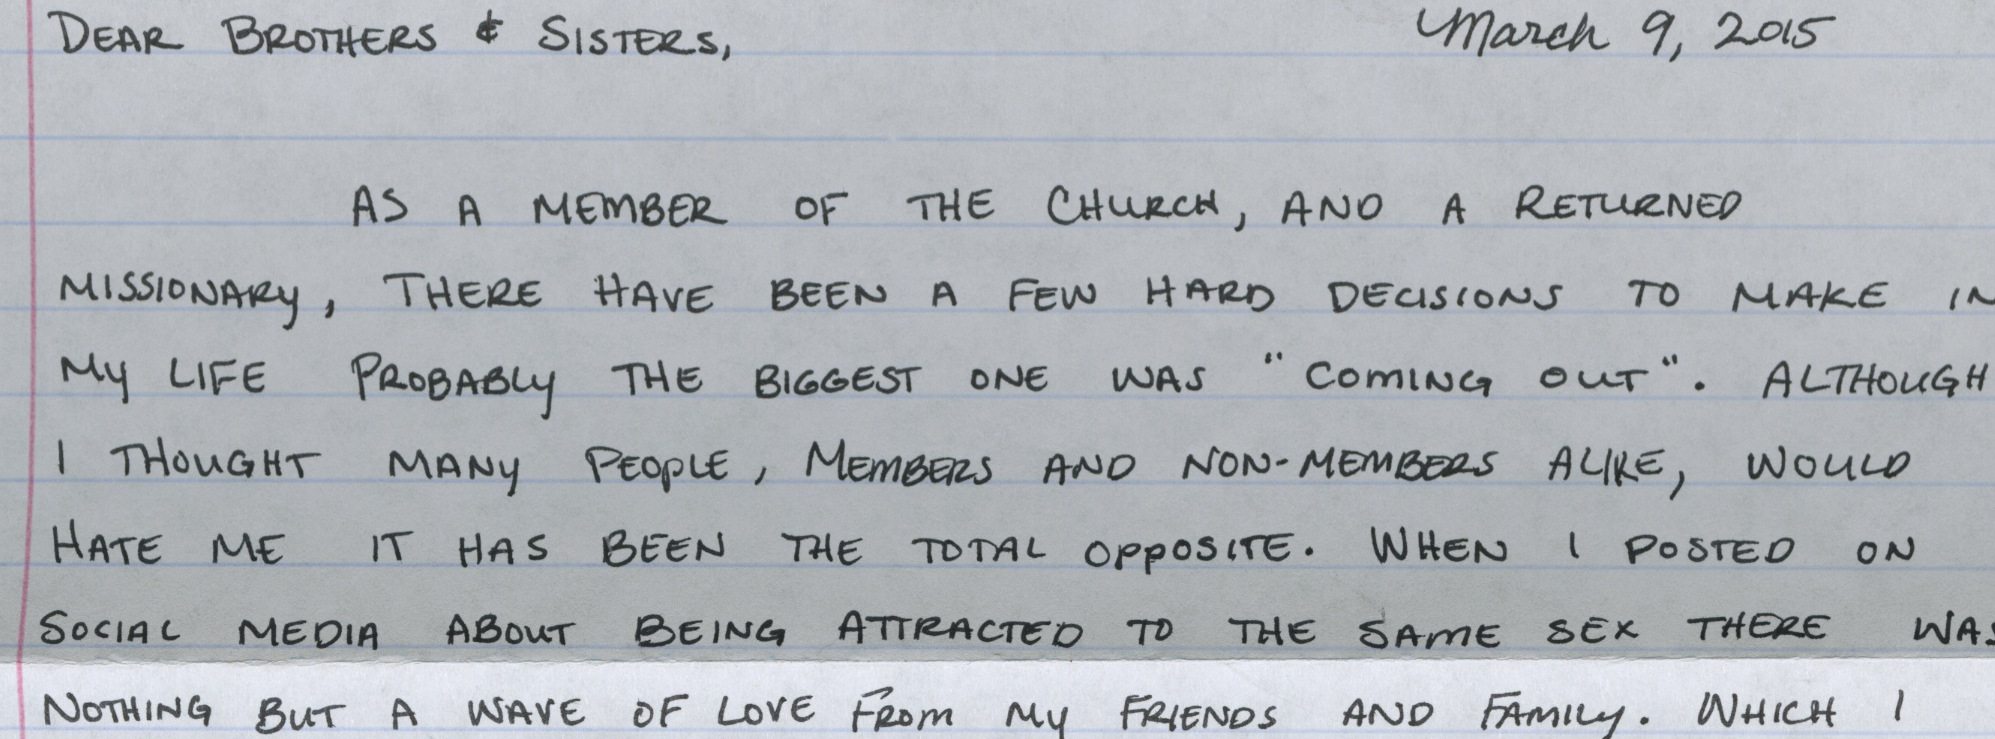 DEAR BROTHERS & SISTERS, March 9, 2015
AS A MEMBER OF THE CHURCH, AND A RETURNED
MISSIONARY, THERE HAVE BEEN A FEW HARD DECISIONS TO MAKE IN
MY LIFE PROBABLY THE BIGGEST ONE WAS "COMING OUT". ALTHOUGH
I THOUGHT MANY PEOPLE, MEMBERS AND NON-MEMBERS ALIKE, WOULD
HATE ME IT HAS BEEN THE TOTAL OPPOSITE. WHEN I POSTED ON
SOCIAL MEDIA ABOUT BEING ATTRACTED TO THE SAME SEX THERE WAS
NOTHING BUT A WAVE OF LOVE FROM MY FRIENDS AND FAMILY. WHICH I